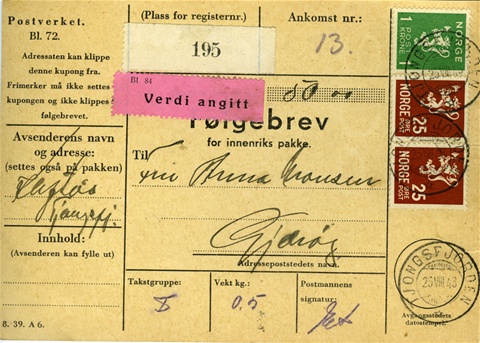 Postverket.
Bl. 72.
Adressaten kan klippe
denne kupong fra.
Frimerker må ikke settes
kupongen og ikke klippes
følgebrevet.
Avsenderens navn
og adresse:
(settes også på pakken)
Innhold:
(Avsenderen kan fylle ut)
8. 39. A 6.
(Plass for registernr.)
195
Bl 84
Verdi angitt
Ankomst nr.:
13.
50 00
Følgebrev
for innenriks pakke.
Til
Anna
Gjerøy
Adressepoststedets navn.
Takstgruppe:
I
Vekt kg.:
0.5
Postmannens
signatur:
Avgangsstedets
datostempel.
1
POST
KRONE
NORGE
NORGE
25
ØRE
POST
NORGE
25
ØRE
POST
TJONGSFJORDEN
25 VIII 43